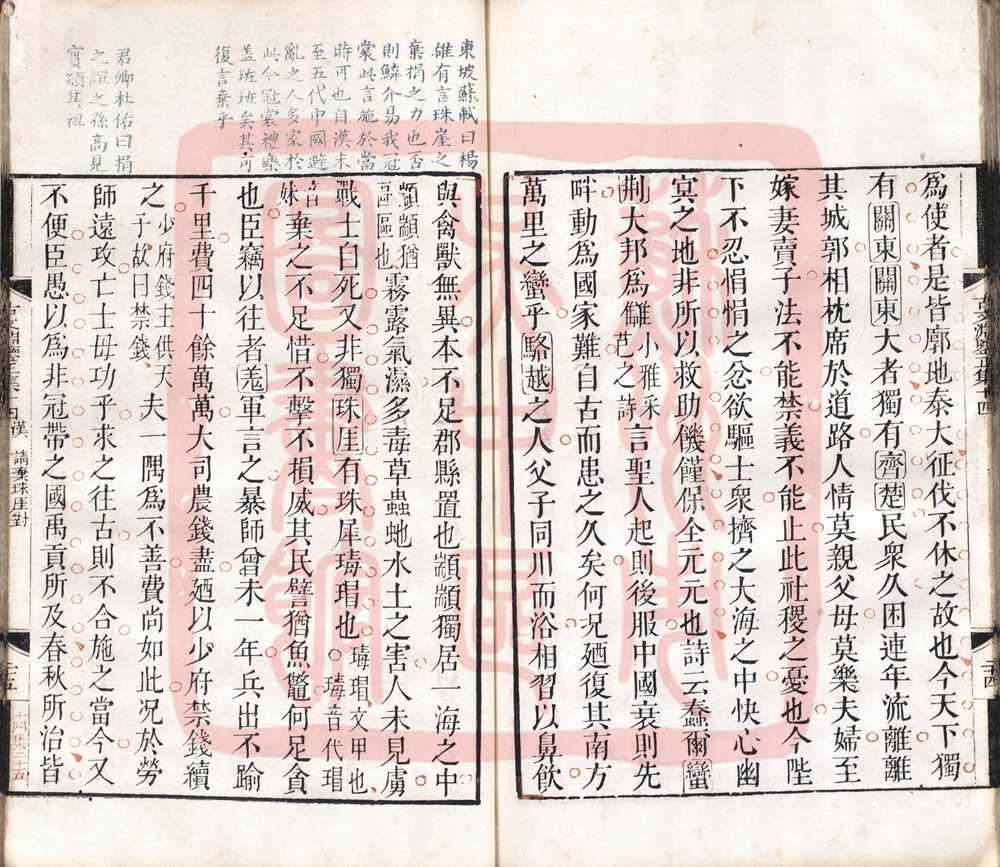 爲使者是皆廓地泰大征伐不休之故也今天下獨
有關東關東大者獨有齊楚民衆久困連年流離離
其城郭相枕席於道路人情莫親父母莫樂夫婦至
嫁妻賣子法不能禁義不能止此社稷之憂也今陛
下不忍悁悁之忿欲驅士衆擠之大海之中快心幽
冥之地非所以救助饑饉保全元元也詩云蠢爾蠻
荆大邦爲讎小雅采芑之詩言聖人起則後服中國衰則先
畔動爲國家難自古而患之久矣何況廼復其南方
萬里之蠻乎駱越之人父子同川而浴相習以鼻飲
東坡蘇軾曰楊
雄有言珠崖之
棄捐之力也否
則鱗介易我冠
裳此言施於當
時可也自漢末
至五代中國避
亂之人多家於
此今冠裳禮樂
蓋班班矣其可
復言棄乎
君卿杜佑曰捐
之誼之孫高見
實類其祖
與禽獸無異本不足郡縣置也顓顓獨居一海之中
顓顓猶區區也霧露氣濕多毒草蟲虵水土之害人未見虜
戰士自死又非獨珠厓有珠犀瑇瑁也瑇瑁文甲也瑇音代瑁
音妹棄之不足惜不擊不損威其民譬猶魚鼈何足貪
也臣竊以往者羌軍言之暴師曾未一年兵出不踰
千里費四十餘萬萬大司農錢盡廼以少府禁錢續
之少府錢主供天子故曰禁錢夫一隅爲不善費尚如此況於勞
師遠攻亡士毋功乎求之往古則不合施之當今又
不便臣愚以爲非冠帶之國禹貢所及春秋所治皆
十四漢
請棄珠厓對
十四集二十五